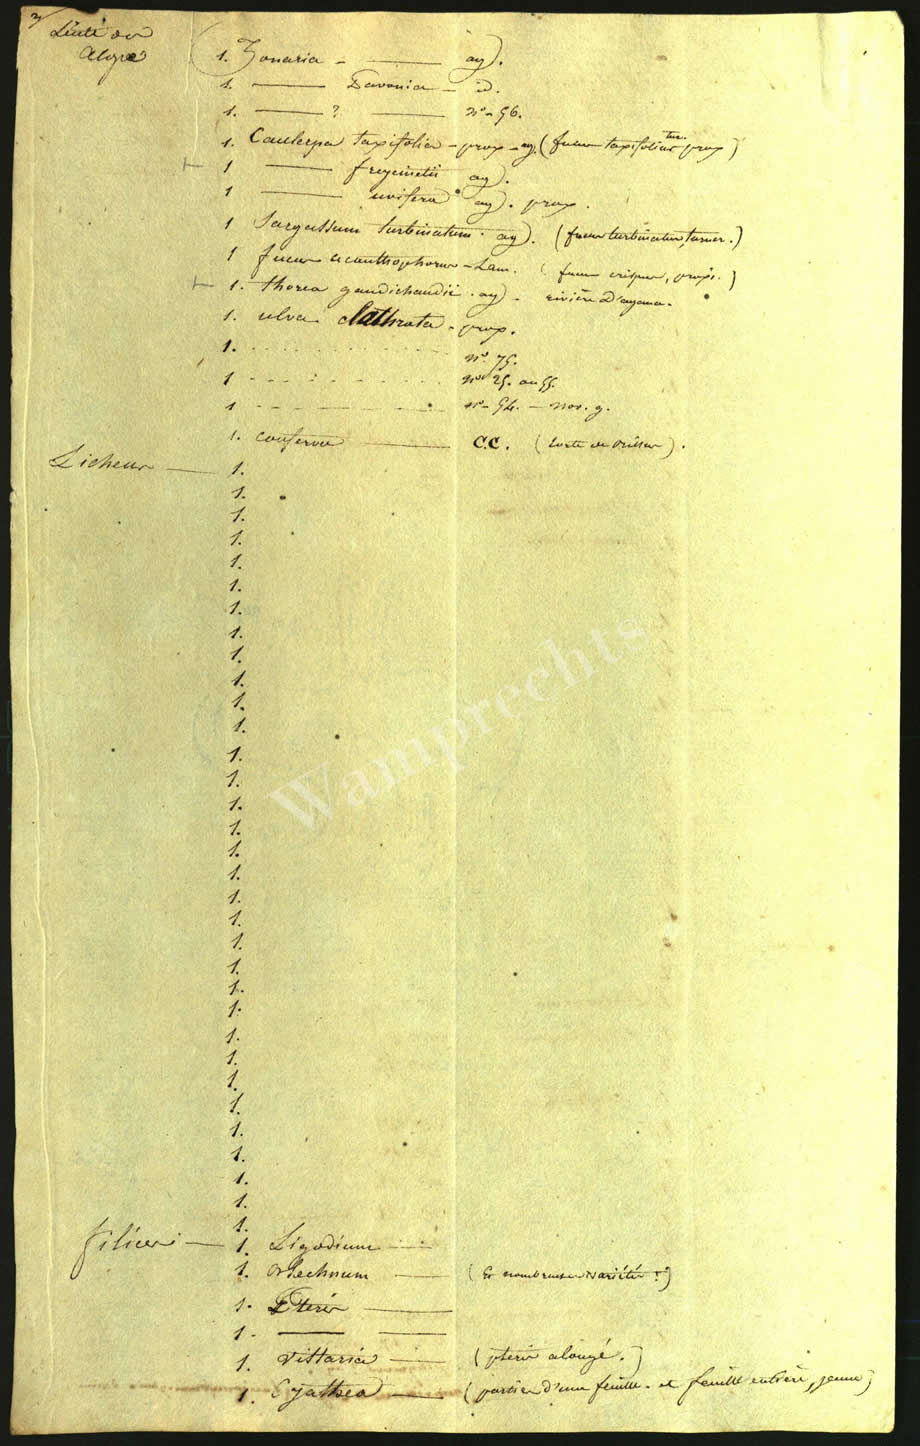 3
Suite des
algues
(1. Zonaria - —— ag).
1. —— Pavonia - id.
1. —— ? —— no - 56.
1. Caulerpa taxifolia - prox - ag. (fucus taxifolius tur. prox)
1 —— freycinetii ag).
1 —— uvifera ag). prox.
1 Sargassum turbinatum. ag). (fucus turbinatus, turner.)
1 fucus acanthophorus - Lam. (fucus crispus, prox.)
1. thorea gaudichaudii. ag) - rivière d'agama.
1. ulva clathrata - prox.
1. . . . . . . . . . . no 75.
1 . . . . . . . . . . nos 25. au 55.
1 - - - - - - - - - no - 54. - nov. g.
1. conferva —— C.C. (sorte de )
Lichens — 1.
1.
1.
1.
1.
1.
1.
1.
1.
1.
1.
1.
1.
1.
1.
1.
1.
1.
1.
1.
1.
1.
1.
1.
1.
1.
1.
1.
1.
1.
1.
1.
1.
filices — 1. Ligodium ——
1. Blechnum —— (et nombreuses variétés !)
1. Pteris ——
1. —— ——
1. Vittaria —— (pteris alongé.)
1. Cyathea —— (partie d'une feuille. et feuille entière, jeune)
Wamprechts